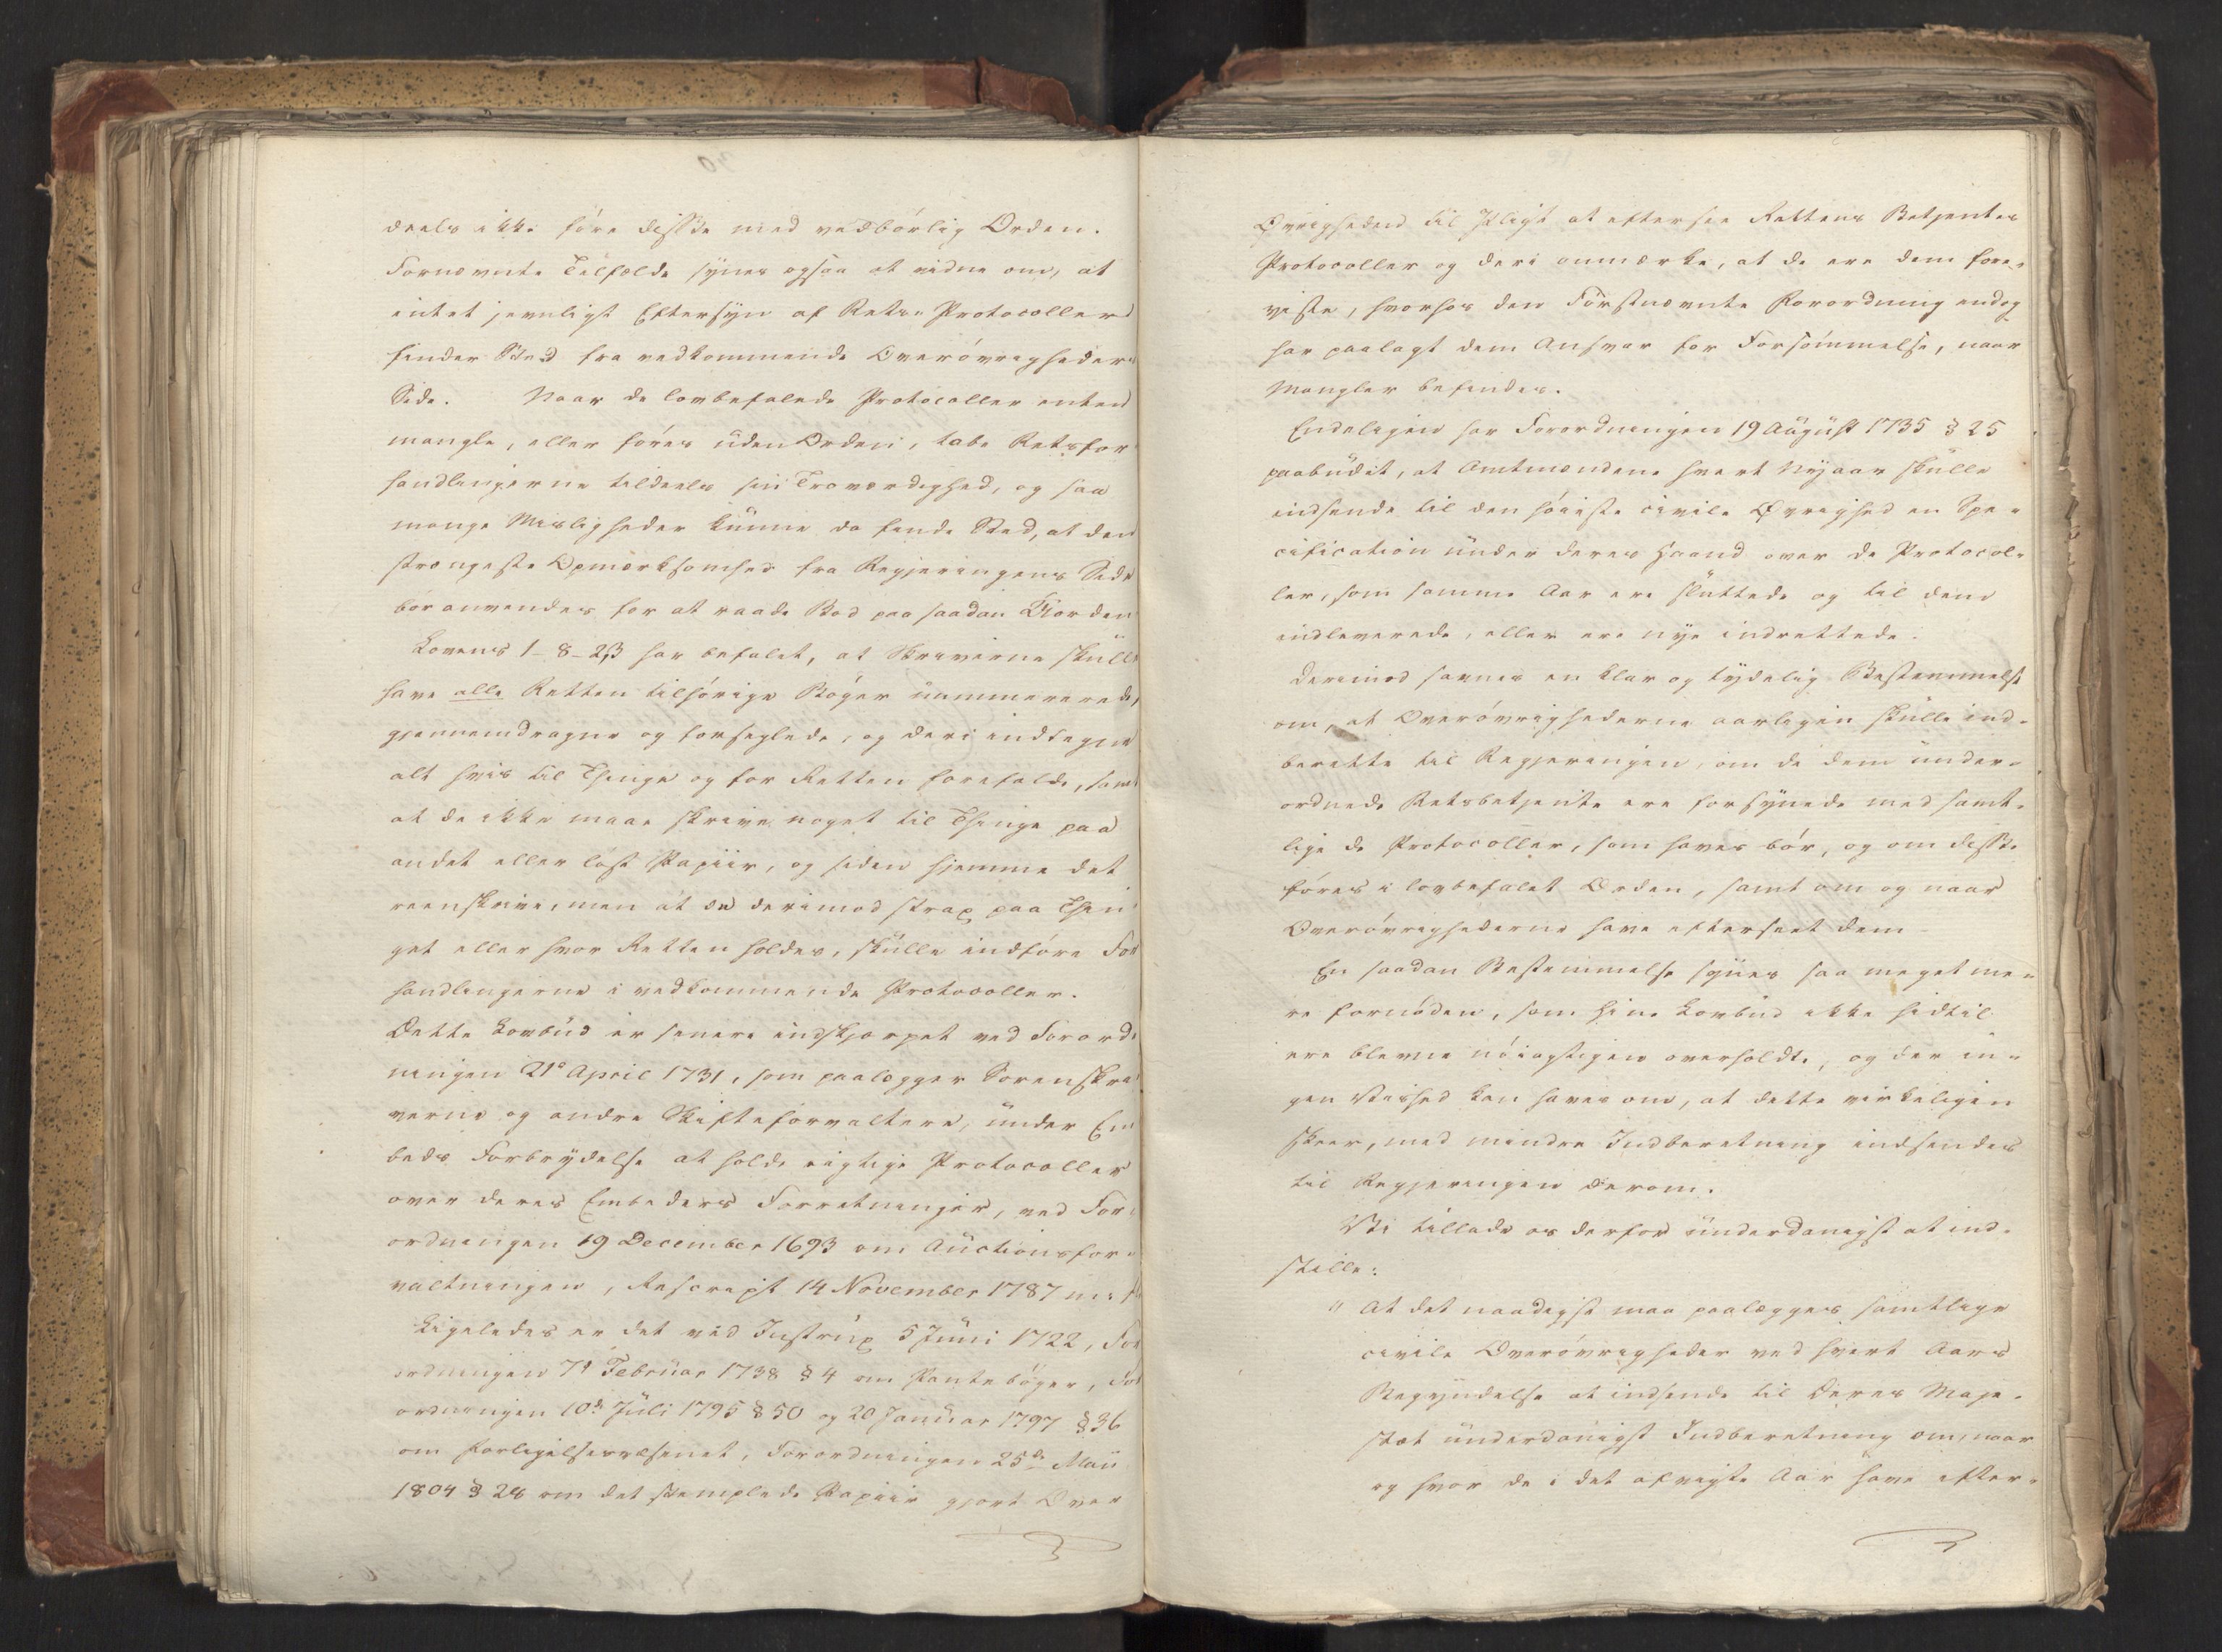 deels ikke føre disse med vedbørlig Orden.
Fornævnte Tilfælde synes ogsaa at vidne om, at
intet jevnligt Eftersyn af Rets-Protocoller
finder Sted fra vedkommende Overøvrigheders
Side. Naar de lovbefalede Protocoller enten
mangle, eller føres uden Orden, tabe Retsfor-
handlingerne tildeels sin Troværdighed, og saa
mange Misligheder kunne da finde Sted, at den
strængeste Opmærksomhed fra Regjeringens Side
bør anvendes for at raade Bod paa saadan Uorden
Lovens 1-8-2,3 har befalet, at Skriverne skulle
have alle Retten tilhørige Bøger nummererede,
gjennemdragne og forseglede, og deri indtegne
alt hvis til Thinge og for Retten forefalde, samt
at de ikke maae skrive noget til Thinge paa
andet eller løst Papiir, og siden hjemme det
reenskrive, men at de derimod strax paa Thin-
get eller hvor Retten holdes, skulle indføre For
handlingerne i vedkommende Protocoller.
Dette Lovbud er senere indskjærpet ved Forord-
ningen 21de April 1731, som paalægger Sorenskri-
verne og andre Skifteforvaltere, under Em
beds Forbrydelse at holde rigtige Protocoller
over deres Embeders Forretninger, ved For-
ordningen 19 December 1693 om Auctionsfor-
valtningen, Rescript 14 November 1787 m: fl:
Ligeledes er det ved Instrux 5 Juni 1722, For
ordningen 7d Februar 1738 § 4 om Pantebøger, For
ordningen 10de Juli 1795 § 50 og 20 Januar 1797 § 36
om Forligelsesvæsenet, Forordningen 25de Maii
1804 § 28 om det stemplede Papiir gjort Over
Øvrigheden til Pligt at eftersee Rettens Betjentes
Protocoller og deri anmærke, at de ere dem fore-
viste, hvorhos den Førstnævnte Forordning endog
har paalagt dem Ansvar for Forsømmelse, naar
Mangler befindes.
Endeligen har Forordningen 19 August 1735 § 25
paabudet, at Amtmændene hvert Nyaar skulle
indsende til den høieste civile Øvrighed en Spe-
cification under deres Haand over de Protocol-
ler, som samme Aar ere sluttede og til dem
indleverede, eller ere nye indrettede.
Derimod savnes en klar og tydelig Bestemmelse
om, at Overøvrighederne aarligen skulle ind-
berette til Regjeringen, om de dem under-
ordnede Retsbetjente ere forsynede med samt-
lige de Protocoller, som haves bør, og om disse
føres i lovbefalet Orden, samt om og naar
Overøvrighederne have efterseet dem.
En saadan Bestemmelse synes saa meget me-
re fornøden, som hine Lovbud ikke hidtil
ere blevne nøiagtigen overholdte, og der in-
gen Vished kan haves om, at dette virkeligen
skeer, med mindre Indberetning indsendes
til Regjeringen derom.
Vi tillade os derfor underdanigst at ind-
stille:
"At det naadigst maa paalægges samtlige
civile Overøvrigheder ved hvert Aars
Begyndelse at indsende til Deres Maje-
stæt underdanigst Indberetning om, naar
og hvor de i det afvigte Aar have efter-